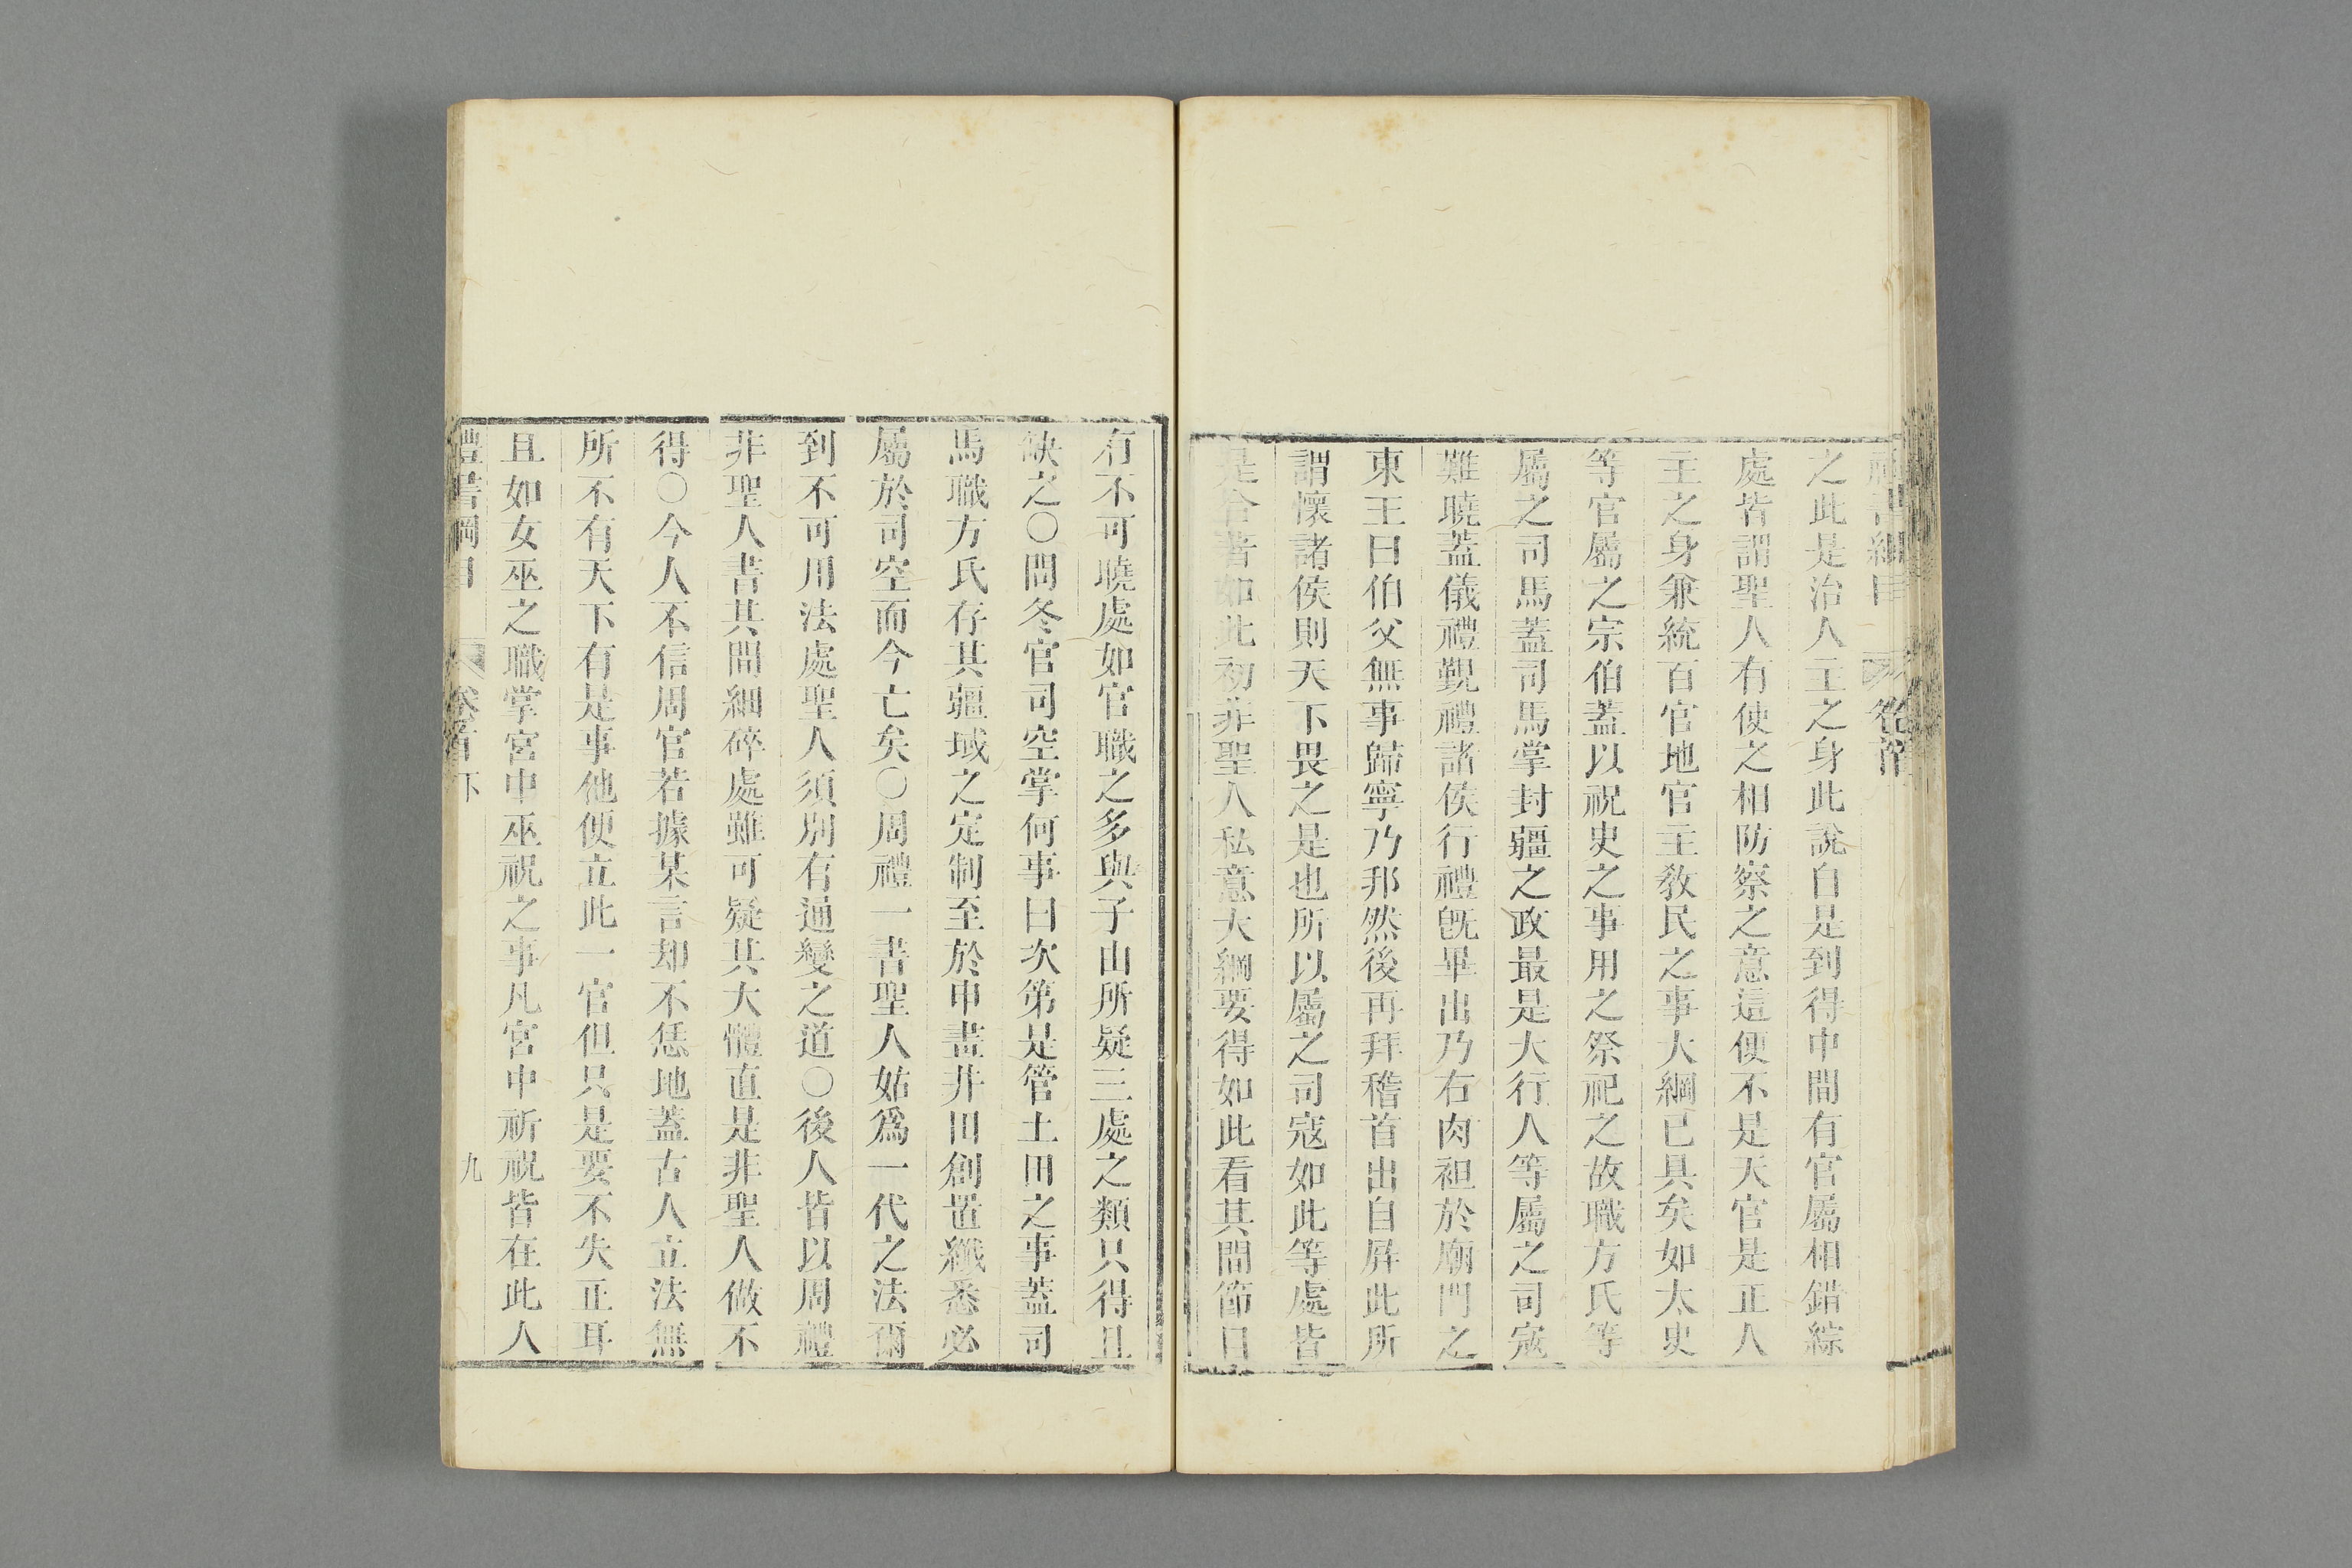 之此是治人主之身此說自是到得中間有官屬相錯綜
處皆謂聖人有使之相防察之意這便不是天官是正人
主之身兼統百官地官主敎民之事大綱已具矣如太史
等官屬之宗伯蓋以祝史之事用之祭祀之故職方氏等
屬之司馬蓋司馬掌封疆之政最是大行人等屬之司寇
難曉蓋儀禮覲禮諸侯行禮旣畢出乃右肉袒於廟門之
東王曰伯父無事歸寧乃邦然後再拜稽首出自屛此所
謂懷諸侯則天下畏之是也所以屬之司寇如此等處皆
是合著如此初非聖人私意大綱要得如此看其間節目
有不可曉處如官職之多與子由所疑三處之類只得且
缺之〇問冬官司空掌何事曰次第是管土田之事蓋司
馬職方氏存其疆域之定制至於申畫井田創置纖悉必
屬於司空而今亡矣〇周禮一書聖人姑爲一代之法爾
到不可用法處聖人須別有通變之道〇後人皆以周禮
非聖人書其間細碎處雖可疑其大體直是非聖人做不
得〇今人不信周官若據某言却不恁地蓋古人立法無
所不有天下有是事他便立此一官但只是要不失正耳
且如女巫之職掌宮中巫祝之事凡宮中祈祝皆在此人
禮書綱目 卷首下 九